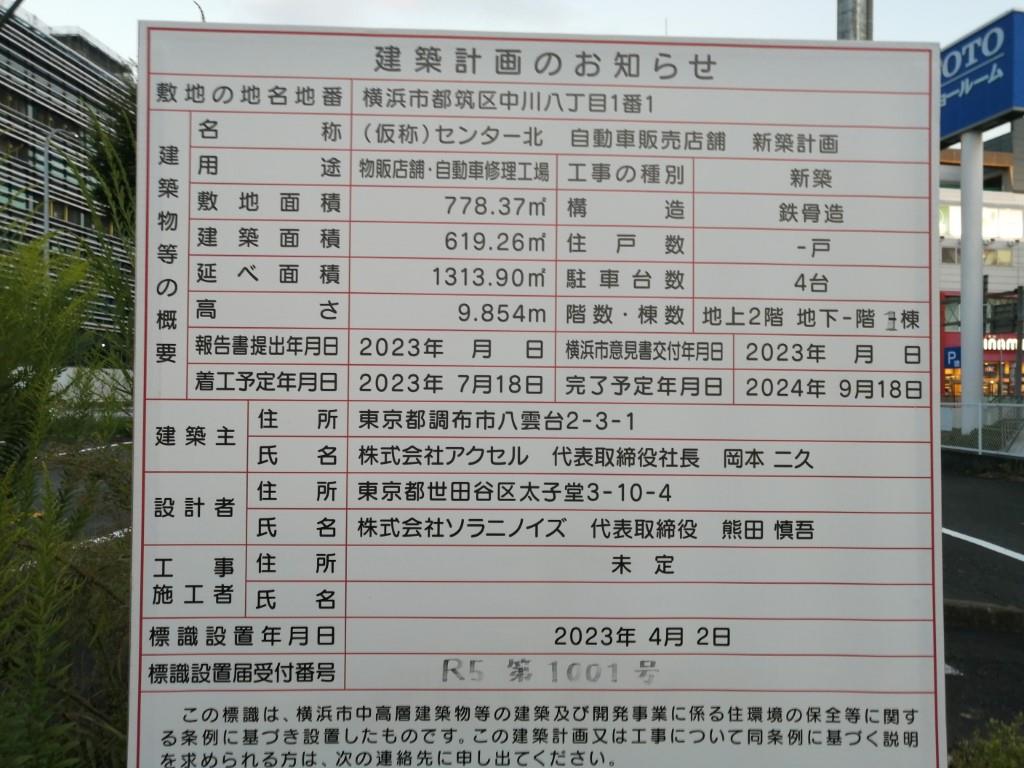 建築計画のお知らせ
敷地の地名地番 横浜市都筑区中川八丁目1番1
建築物等の概要
名称 (仮称)センター北 自動車販売店舗 新築計画
用途 物販店舗・自動車修理工場 工事の種別 新築
敷地面積 778.37㎡ 構造 鉄骨造
建築面積 619.26㎡ 住戸数 -戸
延べ面積 1313.90㎡ 駐車台数 4台
高さ 9.854m 階数・棟数 地上2階 地下-階 1棟
報告書提出年月日 2023年 月 日 横浜市意見書交付年月日 2023年 月 日
着工予定年月日 2023年 7月18日 完了予定年月日 2024年 9月18日
建築主 住所 東京都調布市八雲台2-3-1
氏名 株式会社アクセル 代表取締役社長 岡本 二久
設計者 住所 東京都世田谷区太子堂3-10-4
氏名 株式会社ソラニノイズ 代表取締役 熊田 慎吾
工事施工者 住所 未定
氏名
標識設置年月日 2023年 4月 2日
標識設置届受付番号 R5 第1001号
この標識は、横浜市中高層建築物等の建築及び開発事業に係る住環境の保全等に関す
る条例に基づき設置したものです。この建築計画又は工事について同条例に基づく説明
を求められる方は、次の連絡先に申し出てください。
OTO
ョールーム
P